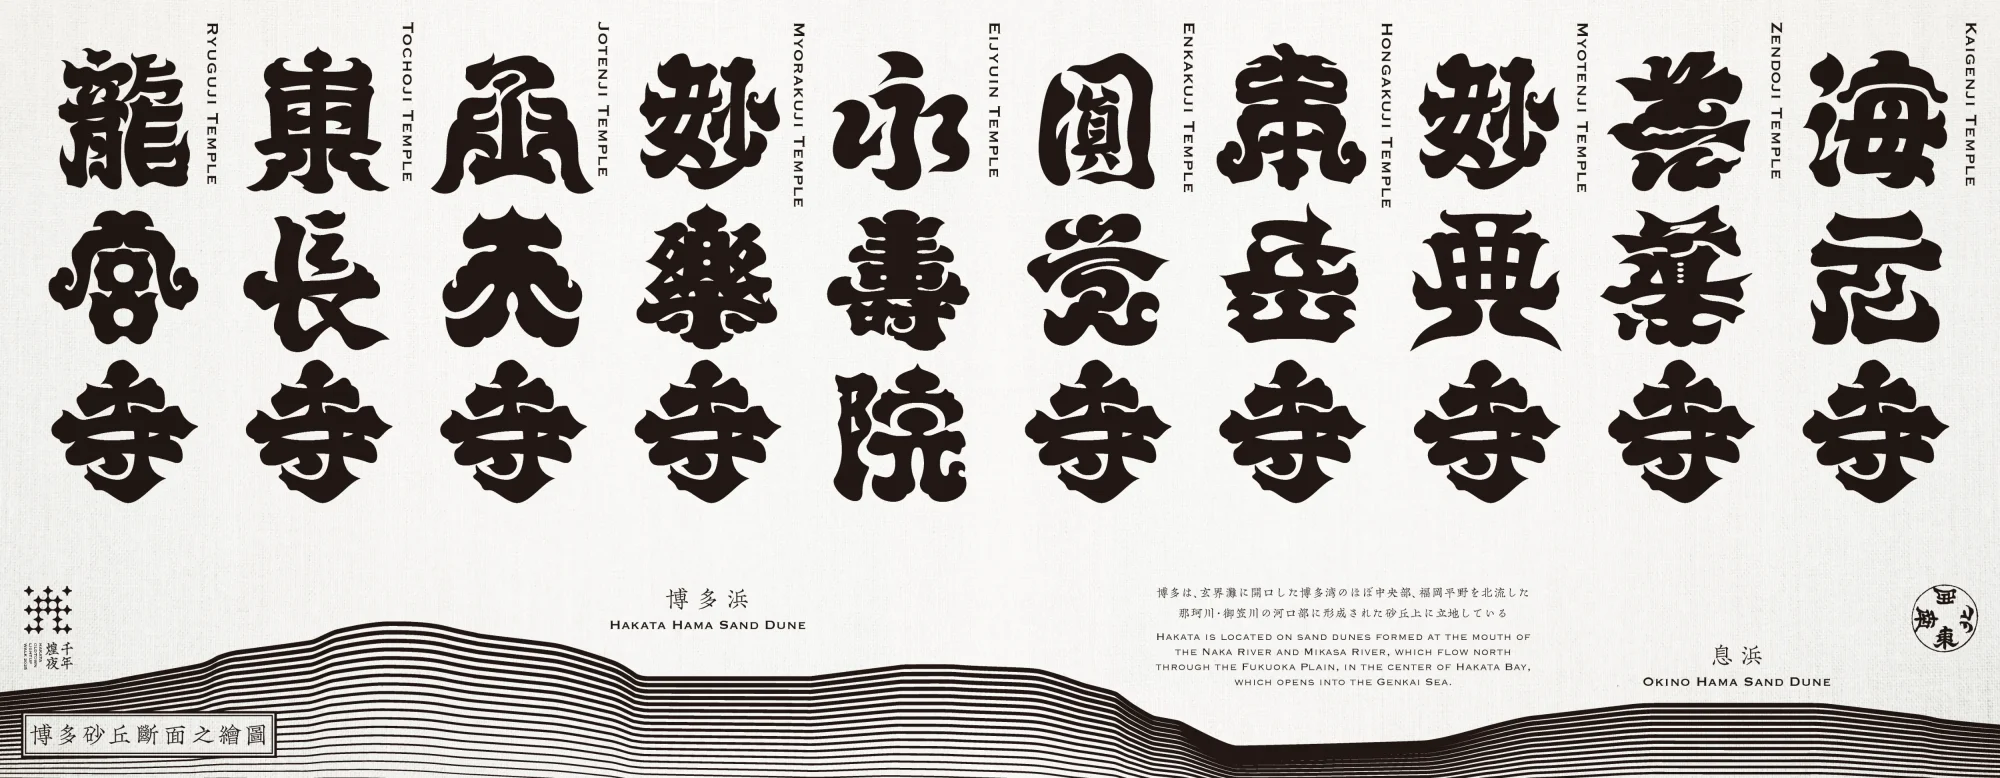 海元寺
KAIGENJI TEMPLE
善導寺
ZENDOJI TEMPLE
妙典寺
MYOTENJI TEMPLE
本岳寺
HONGAKUJI TEMPLE
圓覚寺
ENKAKUJI TEMPLE
永壽院
EIJYUIN TEMPLE
妙樂寺
MYORAKUJI TEMPLE
承天寺
JOTENJI TEMPLE
東長寺
TOCHOJI TEMPLE
龍宮寺
RYUGUJI TEMPLE
西
北
東
南
息浜
OKINO HAMA SAND DUNE
博多は、玄界灘に開口した博多湾のほぼ中央部、福岡平野を北流した
那珂川・御笠川の河口部に形成された砂丘上に立地している
HAKATA IS LOCATED ON SAND DUNES FORMED AT THE MOUTH OF
THE NAKA RIVER AND MIKASA RIVER, WHICH FLOW NORTH
THROUGH THE FUKUOKA PLAIN, IN THE CENTER OF HAKATA BAY,
WHICH OPENS INTO THE GENKAI SEA.
博多浜
HAKATA HAMA SAND DUNE
千年
煌夜
博多砂丘斷面之繪圖